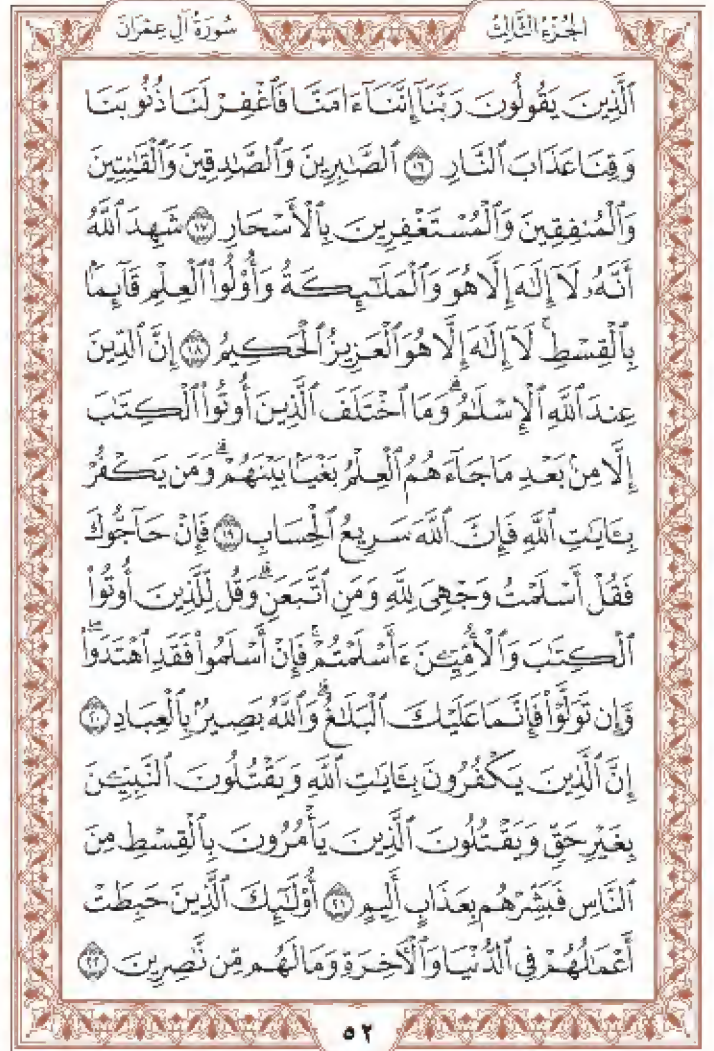 سُورَةُ آلِ عِمْرَانَ الجُزْءُ الثَّالِثُ
ٱلَّذِينَ يَقُولُونَ رَبَّنَآ إِنَّنَآ ءَامَنَّا فَٱغْفِرْ لَنَا ذُنُوبَنَا
وَقِنَا عَذَابَ ٱلنَّارِ ١٦ ٱلصَّٰبِرِينَ وَٱلصَّٰدِقِينَ وَٱلْقَٰنِتِينَ
وَٱلْمُنفِقِينَ وَٱلْمُسْتَغْفِرِينَ بِٱلْأَسْحَارِ ١٧ شَهِدَ ٱللَّهُ
أَنَّهُۥ لَآ إِلَٰهَ إِلَّا هُوَ وَٱلْمَلَٰٓئِكَةُ وَأُو۟لُوا۟ ٱلْعِلْمِ قَآئِمًۢا
بِٱلْقِسْطِ ۚ لَآ إِلَٰهَ إِلَّا هُوَ ٱلْعَزِيزُ ٱلْحَكِيمُ ١٨ إِنَّ ٱلدِّينَ
عِندَ ٱللَّهِ ٱلْإِسْلَٰمُ ۗ وَمَا ٱخْتَلَفَ ٱلَّذِينَ أُوتُوا۟ ٱلْكِتَٰبَ
إِلَّا مِنۢ بَعْدِ مَا جَآءَهُمُ ٱلْعِلْمُ بَغْيًۢا بَيْنَهُمْ ۗ وَمَن يَكْفُرْ
بِـَٔايَٰتِ ٱللَّهِ فَإِنَّ ٱللَّهَ سَرِيعُ ٱلْحِسَابِ ١٩ فَإِنْ حَآجُّوكَ
فَقُلْ أَسْلَمْتُ وَجْهِىَ لِلَّهِ وَمَنِ ٱتَّبَعَنِ ۗ وَقُل لِّلَّذِينَ أُوتُوا۟
ٱلْكِتَٰبَ وَٱلْأُمِّيِّـۧنَ ءَأَسْلَمْتُمْ ۚ فَإِنْ أَسْلَمُوا۟ فَقَدِ ٱهْتَدَوا۟ ۖ
وَّإِن تَوَلَّوْا۟ فَإِنَّمَا عَلَيْكَ ٱلْبَلَٰغُ ۗ وَٱللَّهُ بَصِيرٌۢ بِٱلْعِبَادِ ٢٠
إِنَّ ٱلَّذِينَ يَكْفُرُونَ بِـَٔايَٰتِ ٱللَّهِ وَيَقْتُلُونَ ٱلنَّبِيِّـۧنَ
بِغَيْرِ حَقٍّ وَيَقْتُلُونَ ٱلَّذِينَ يَأْمُرُونَ بِٱلْقِسْطِ مِنَ
ٱلنَّاسِ فَبَشِّرْهُم بِعَذَابٍ أَلِيمٍ ٢١ أُو۟لَٰٓئِكَ ٱلَّذِينَ حَبِطَتْ
أَعْمَٰلُهُمْ فِى ٱلدُّنْيَا وَٱلْءَاخِرَةِ وَمَا لَهُم مِّن نَّٰصِرِينَ ٢٢
٥٢